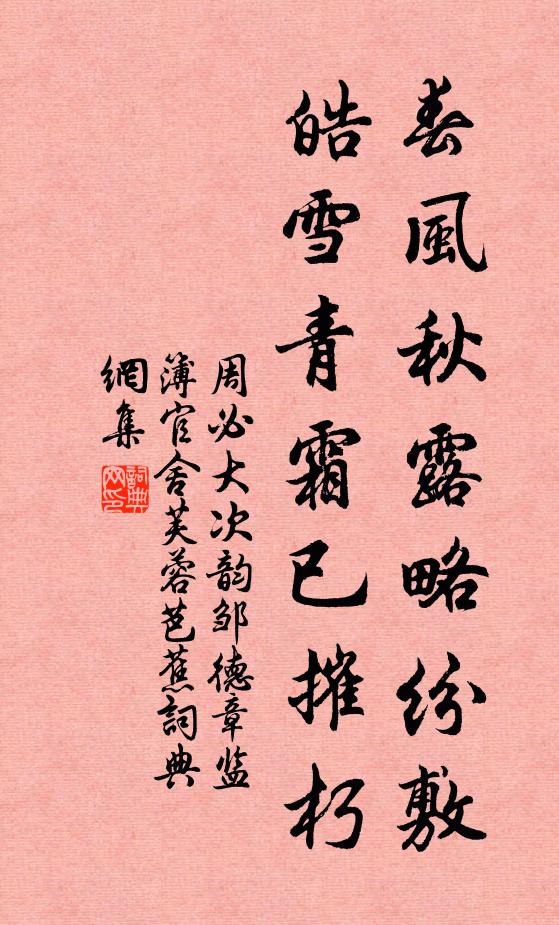 春風秋露略紛敷
皓雪青霜已摧朽
周必大次韵邹德章监
簿官舍芙蓉芭蕉詞典
網集
詞典网印